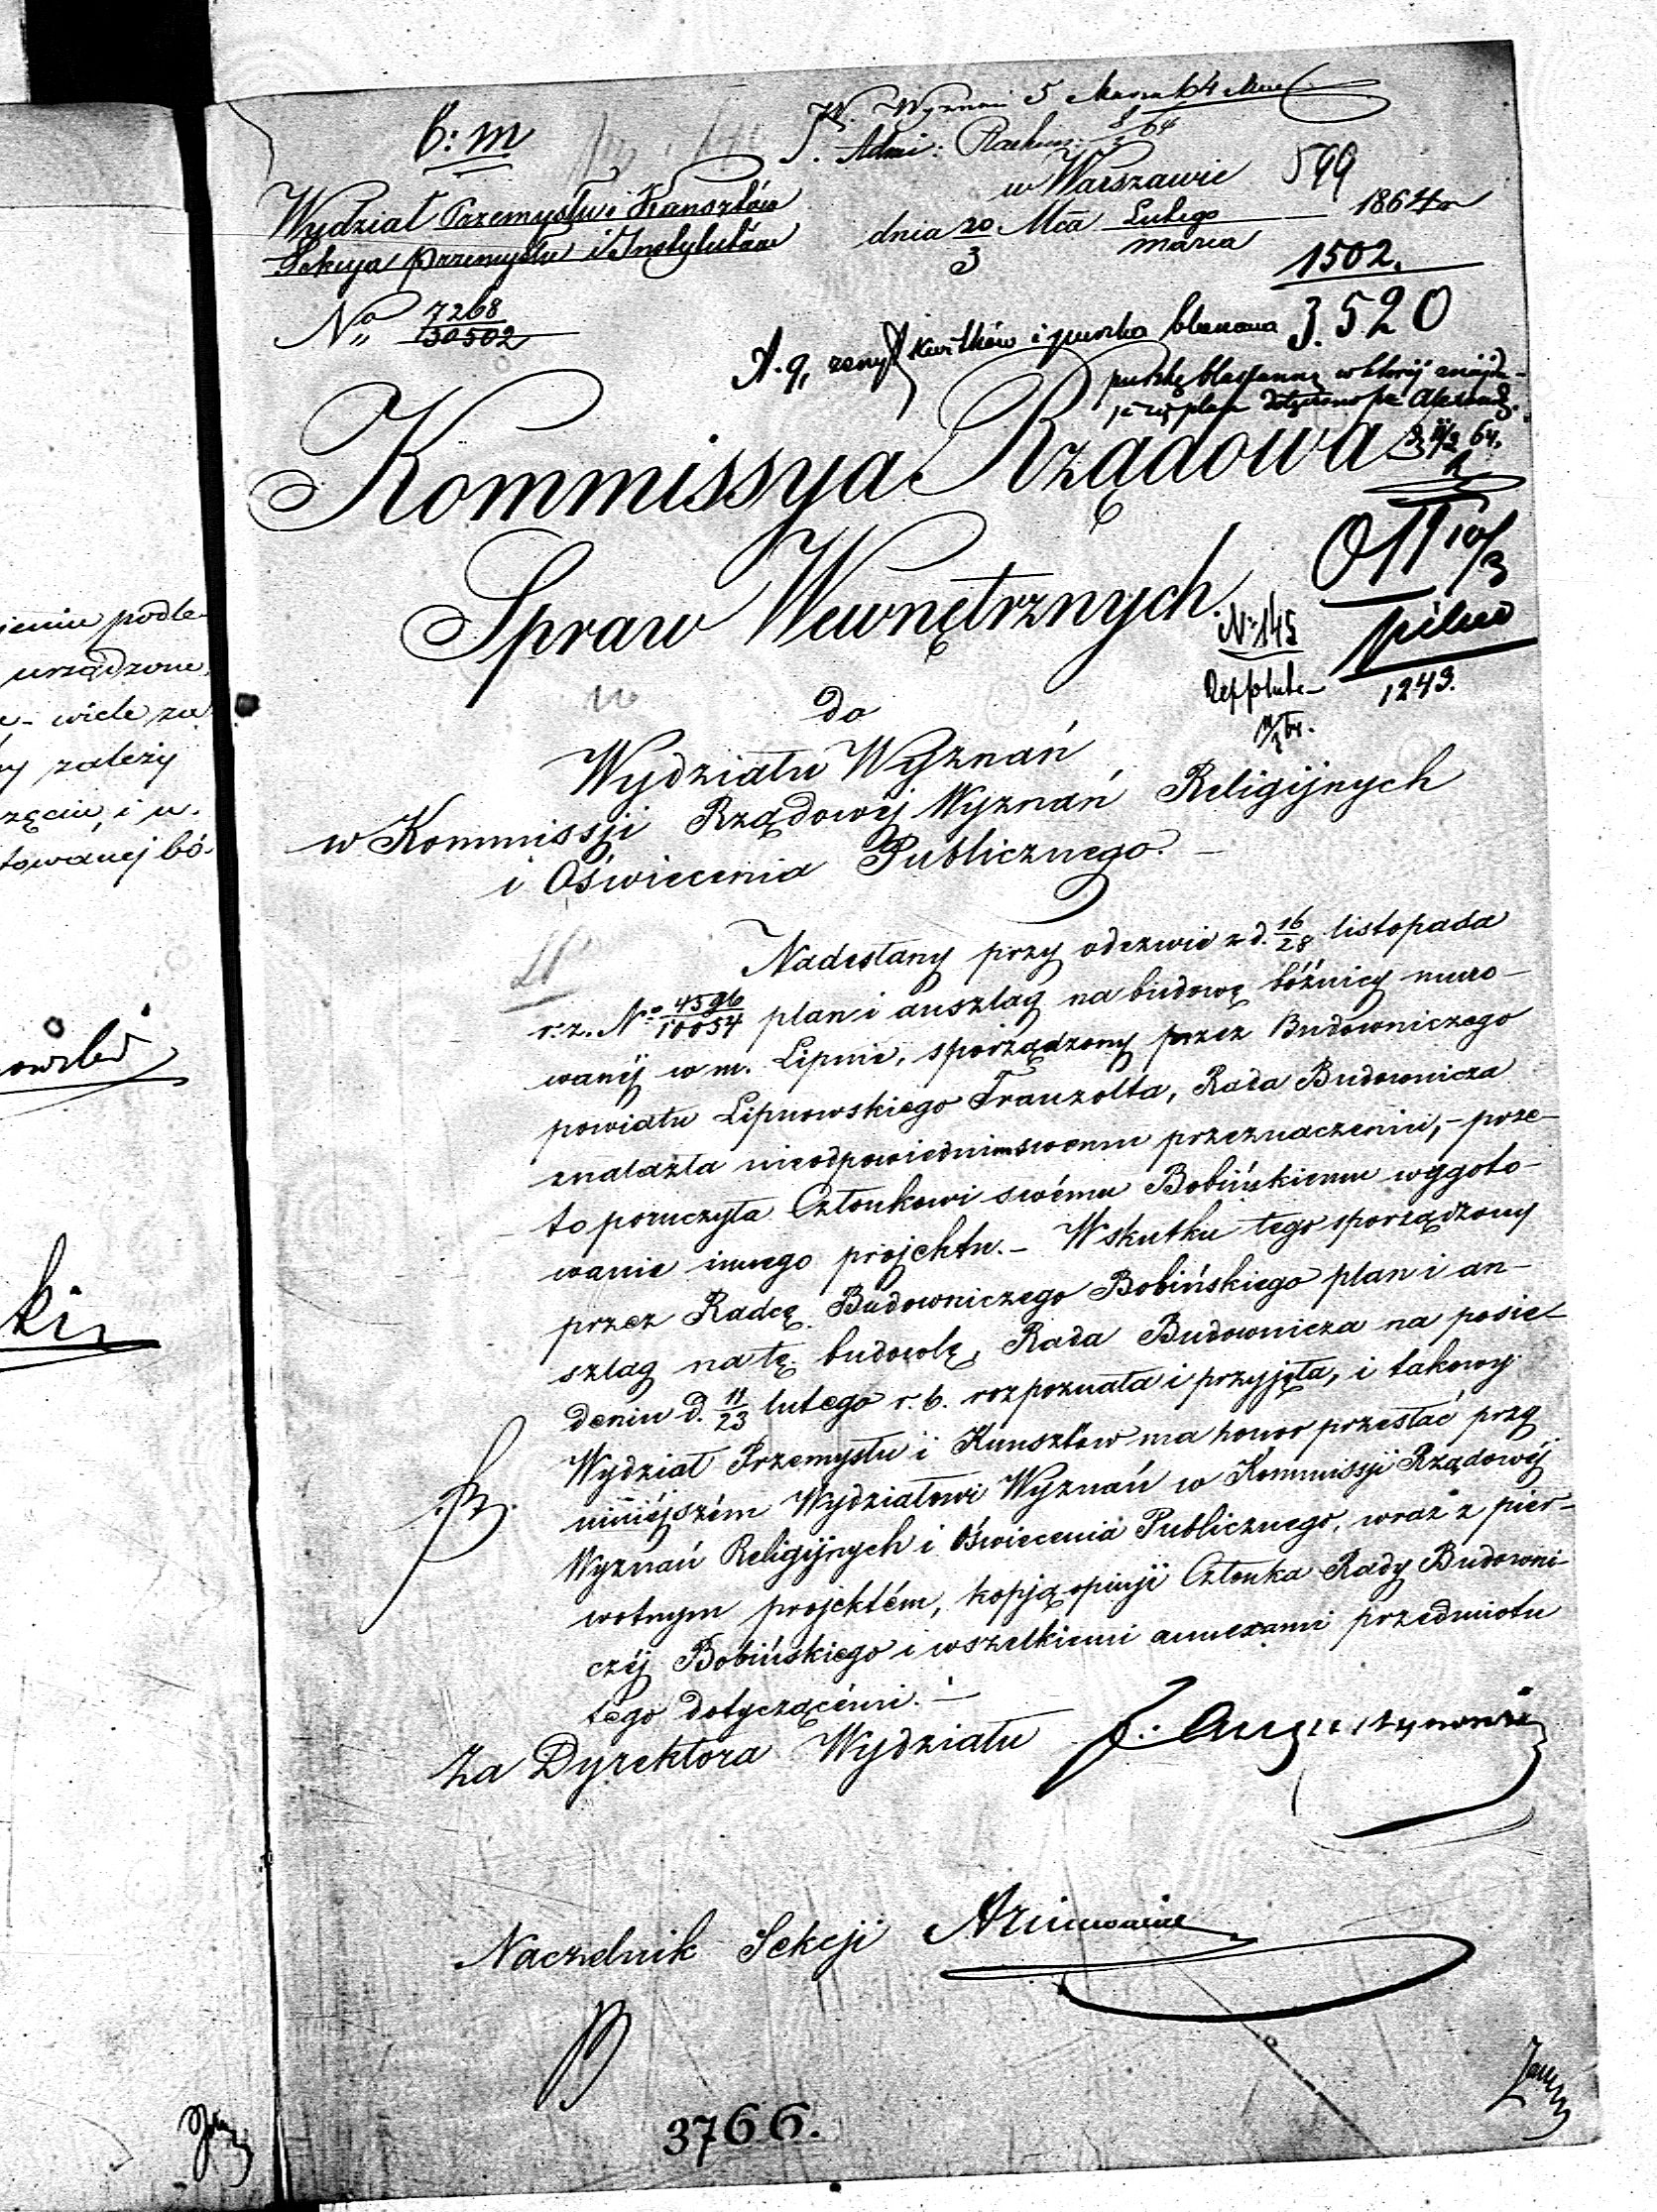 jeniu podle-
urządzone
wiele za
ny zależy
zęciu, i u-
towanéj bó-
ki
b: m
W. Wyznań 5 Marca 64
Admi: Rachun: 8/3 64
w Warszawie 599
Wydział Przemysłu i Kunsztów
dnia 20/3 Mca Lutego/Marca 1864 r
Sekcya Przemysłu i Instytutów
1502.
No 7268/30502
kwitków i puszka blaszana 3.520
puszkę blaszanną w któréj znajdu-
je się plan
Kommissya Rządowa
Spraw Wewnętrznych.
No 145
pilno
1243.
do
Wydziału Wyznań
w Kommissji Rządowéj Wyznań Religijnych
i Oświecenia Publicznego. –
Nadesłany przy odezwie z d. 16/28 listopada
r. z. No 4596/10054 plan i anszlag na budowę bóżnicy muro-
wanéj w m. Lipnie, sporządzony przez Budowniczego
powiatu Lipnowskiego Franzolta, Rada Budownicza
znalazła nieodpowiednim swemu przeznaczeniu, – prze-
to poruczyła Członkowi swému Bobińskiemu wygoto-
wanie innego projektu. – W skutku tego sporządzony
przez Radcę Budowniczego Bobińskiego plan i an-
szlag na tę budowlę, Rada Budownicza na posie-
dzeniu d. 11/23 lutego r. b. rozpoznała i przyjęła, i takowy
Wydział Przemysłu i Kunsztów ma honor przesłać przy
niniéjszém Wydziałowi Wyznań w Kommissji Rządowéj
Wyznań Religijnych i Oświecenia Publicznego, wraz z pier-
wotnym projektém, kopją opinji Członka Rady Budowni-
czéj Bobińskiego i wszelkiemi annexami przedmiotu
tego dotyczącémi. –
Za Dyrektora Wydziału
Naczelnik Sekcji
3766.